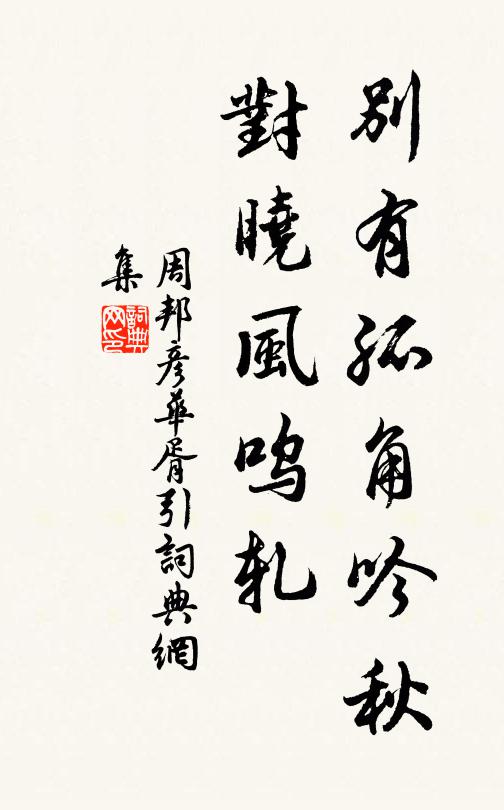 別有孤角吟秋
對曉風鸣軋
周邦彥華胥引詞典網
集
詞典
网印